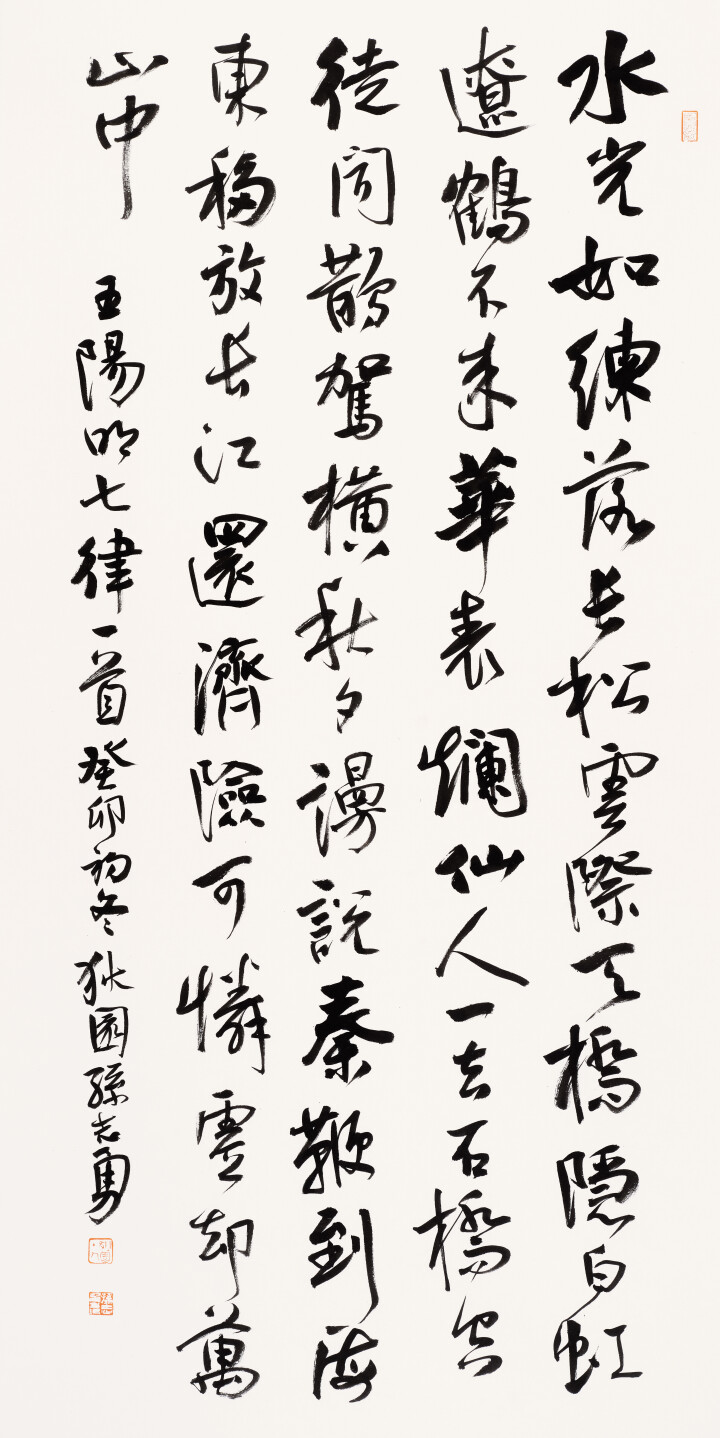 水光如練落長松雲際天橋隱白虹
遼鶴不來華表爛仙人一去石橋空
徒聞鵲駕橫秋夕謾說秦鞭到海
東移放長江還濟險可憐虛却萬
山中
王陽明七律一首癸卯初冬狄園孫志勇